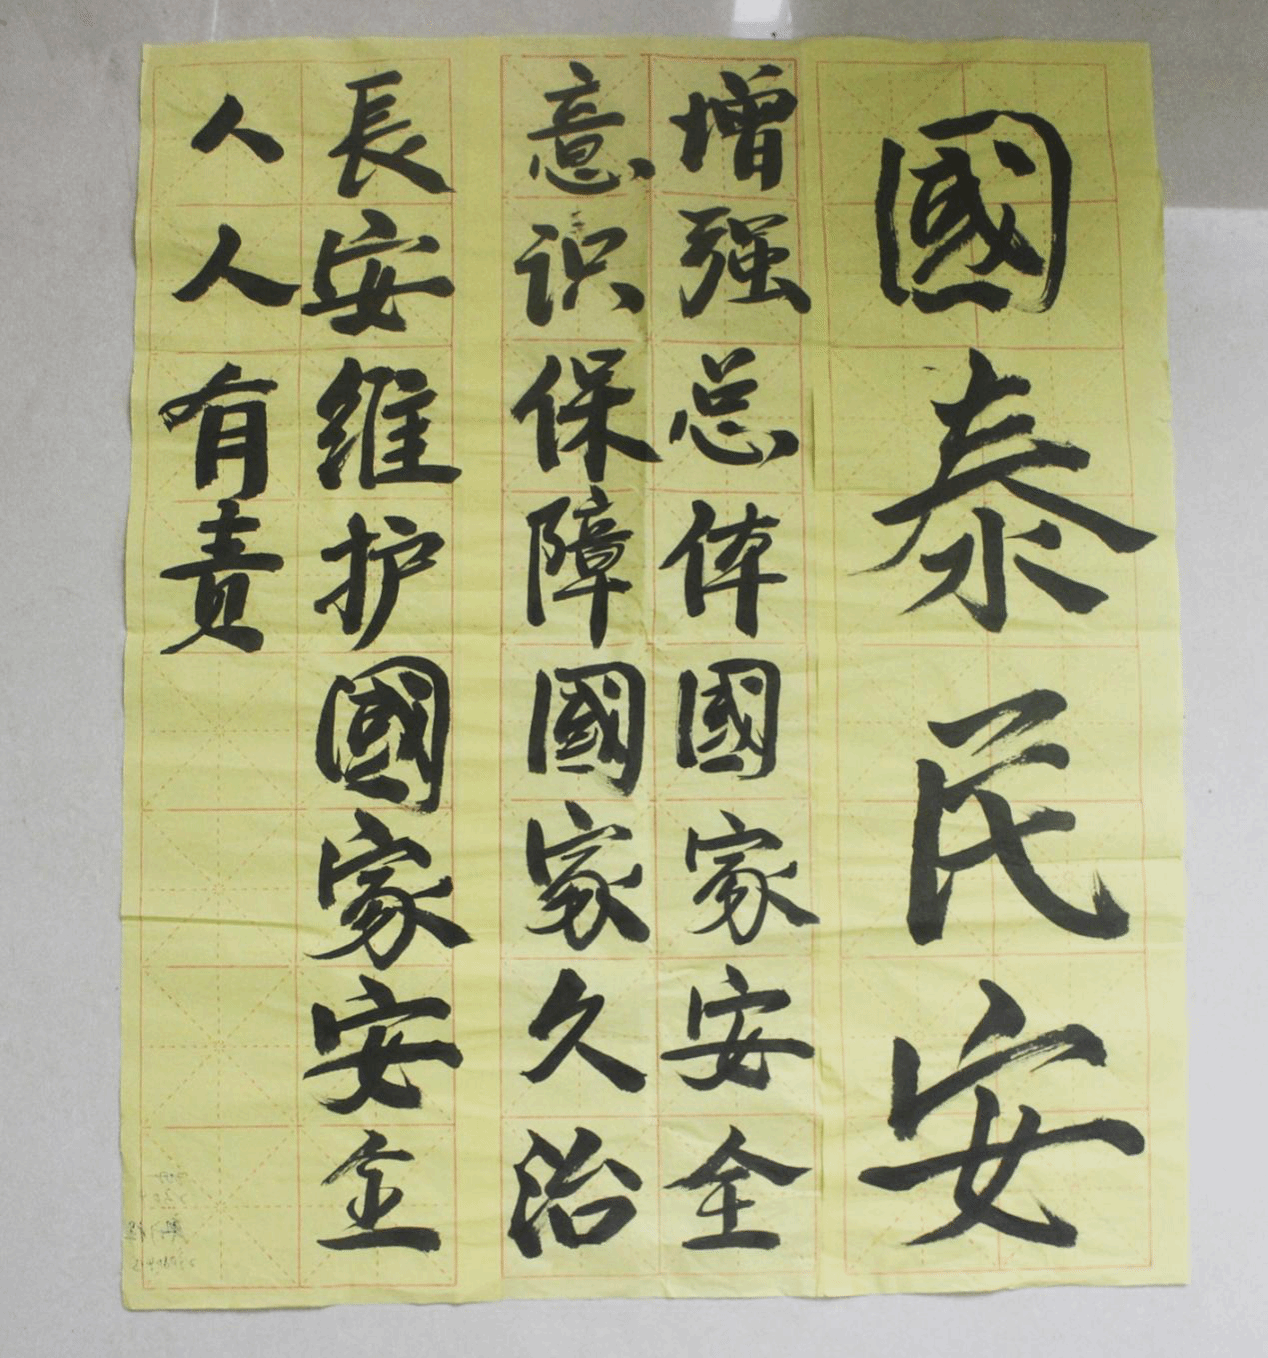 國泰民安
增强总体國家安全
意识保障國家久治
長安维护國家安全
人人有责